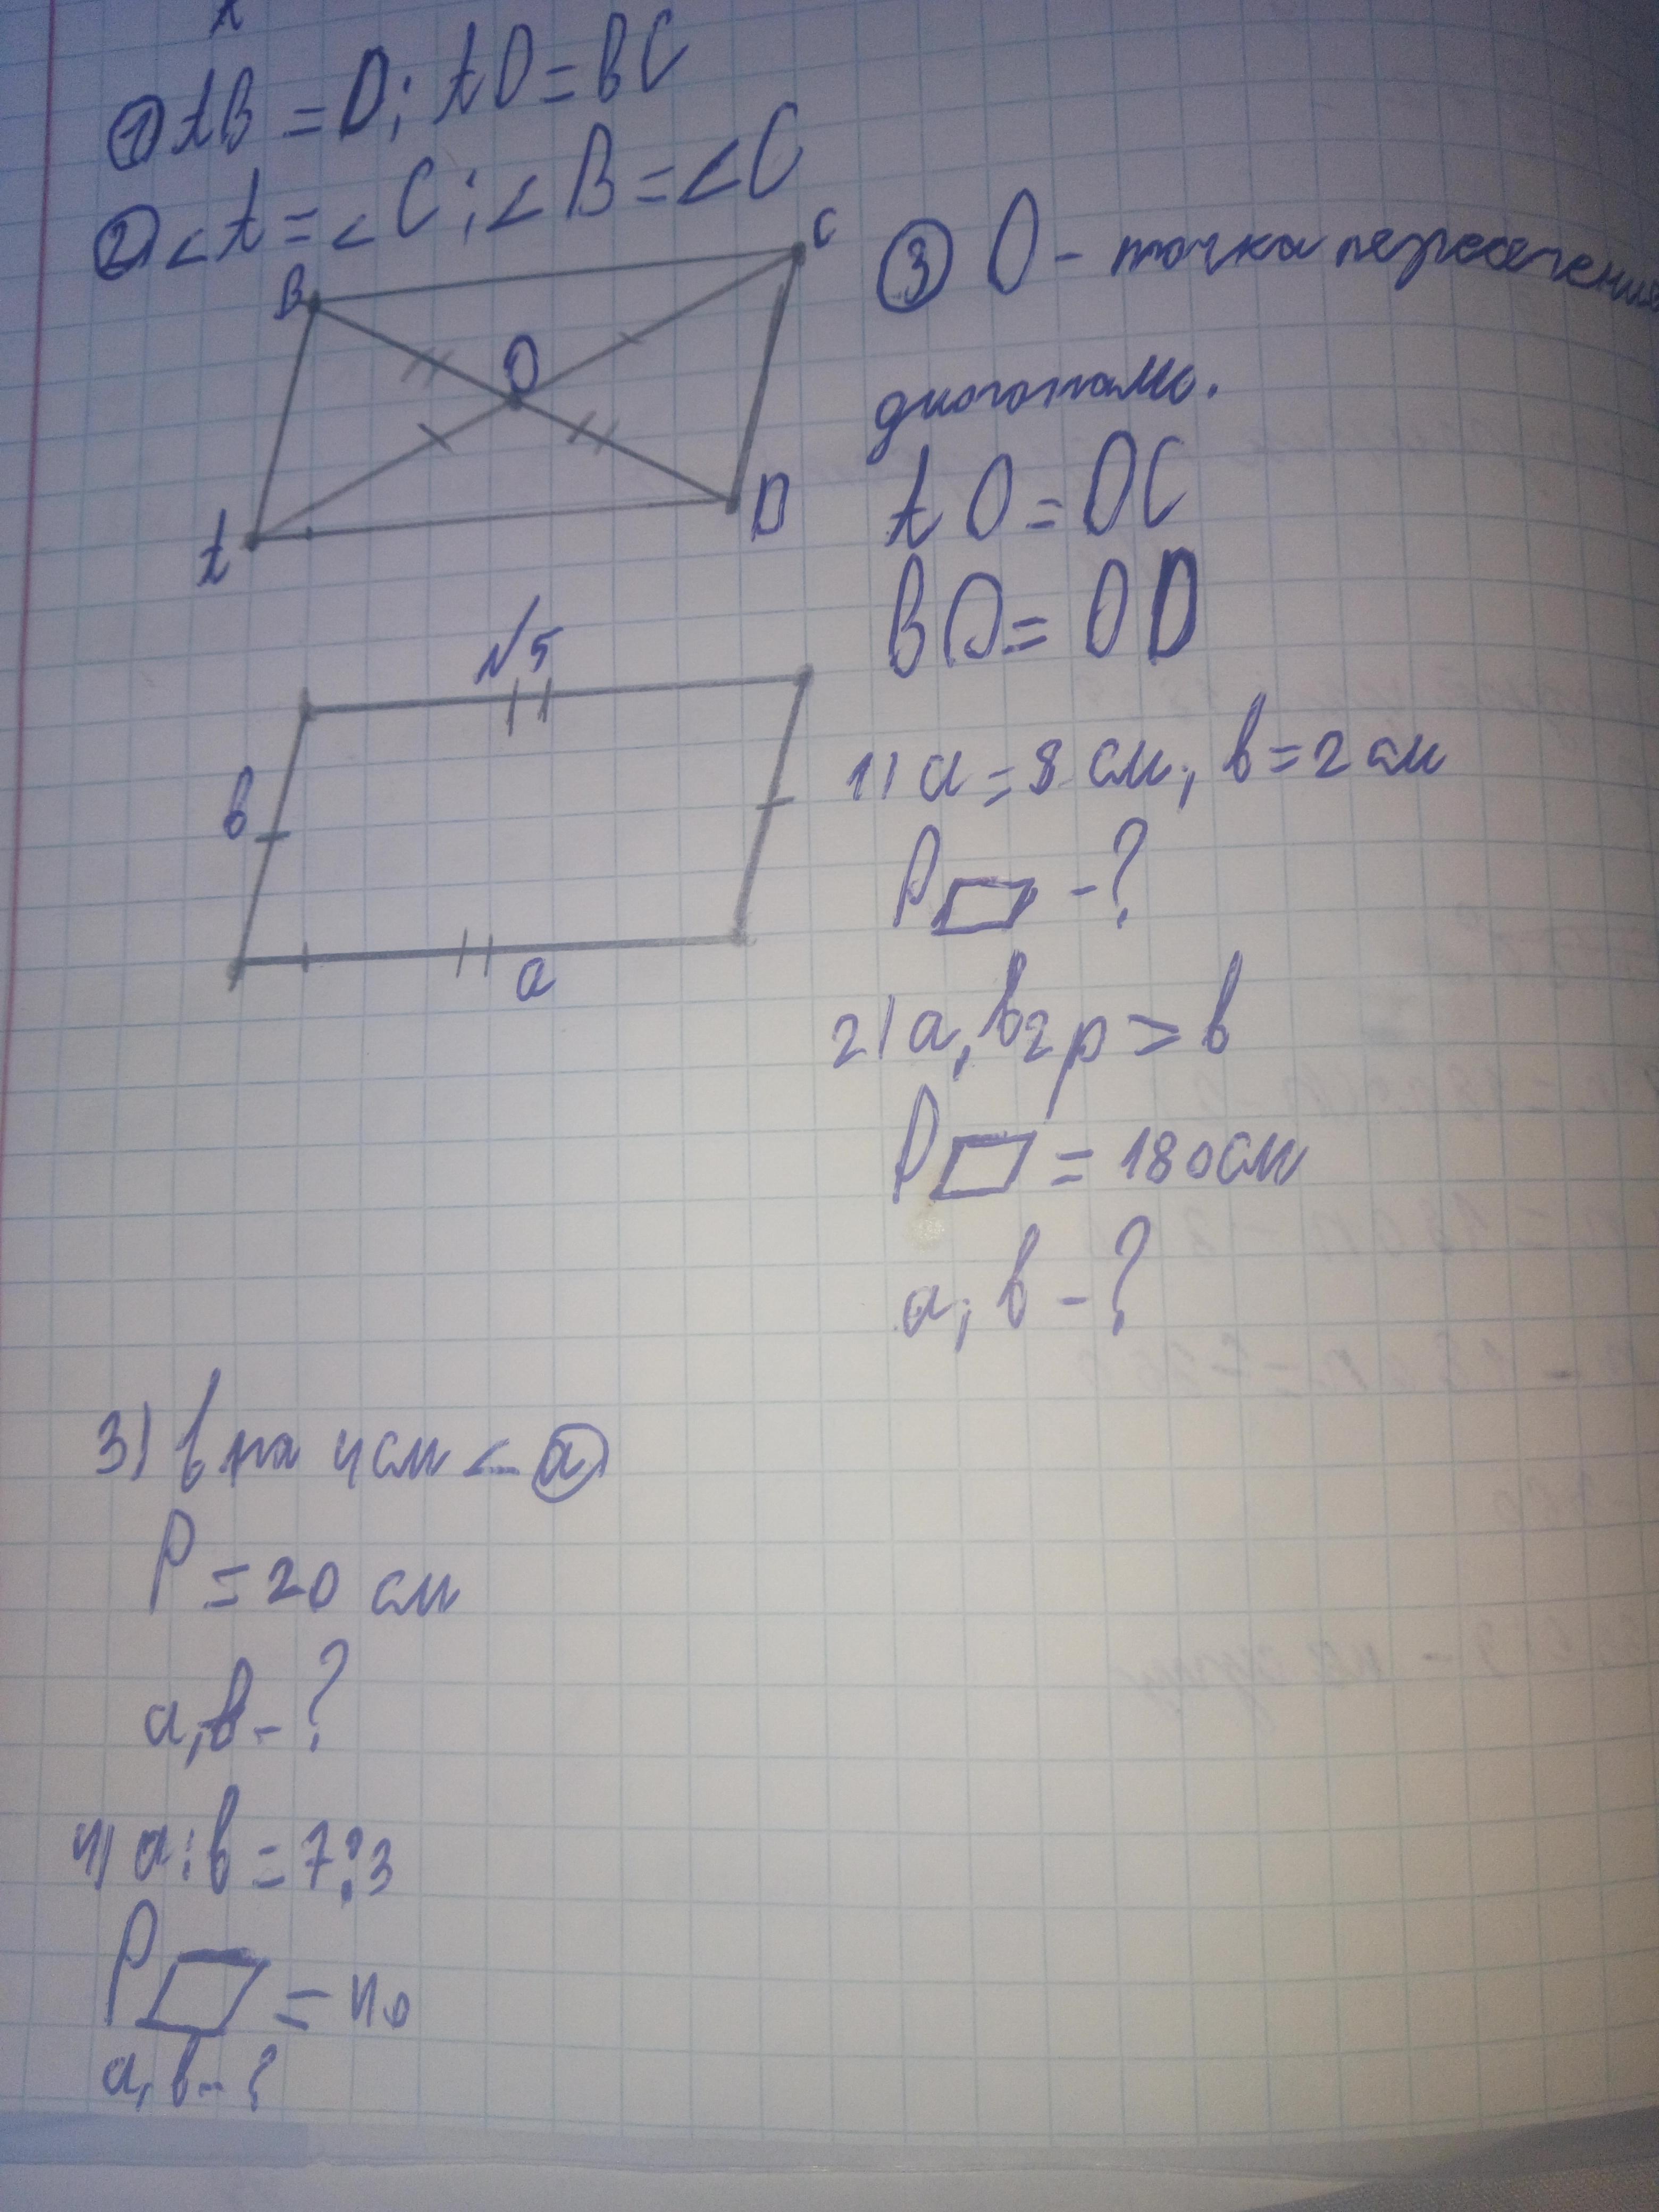 ① AB = D; AD = BC
② ∠A = ∠C; ∠B = ∠C
B
C
O
A
D
③ O - точка пересечения
диагоналей.
AO = OC
BO = OD
№5
в
a
1) a = 8 см; в = 2 см
P▱ - ?
2) a, в 2 р > в
P▱ = 180 см
a; в - ?
3) в на 4 см < a
P = 20 см
a, в - ?
4) a : в = 7:3
P▱ = 40
a, в - ?